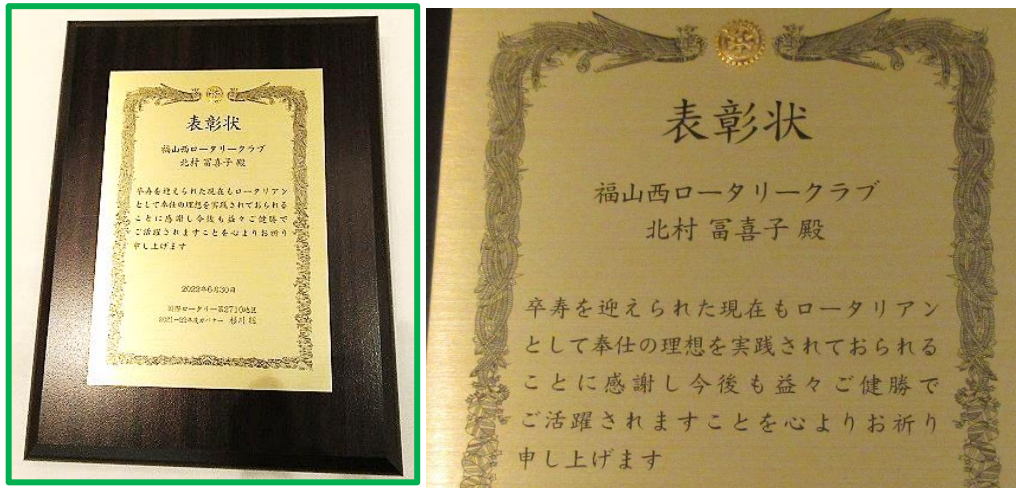 表彰状
福山西ロータリークラブ
北村 冨喜子 殿
卒寿を迎えられた現在もロータリアン
として奉仕の理想を実践されておられる
ことに感謝し今後も益々ご健勝で
ご活躍されますことを心よりお祈り
申し上げます
2022年6月30日
国際ロータリー第2710地区
2021-22年度ガバナー 杉川 聡
表彰状
福山西ロータリークラブ
北村 冨喜子 殿
卒寿を迎えられた現在もロータリアン
として奉仕の理想を実践されておられる
ことに感謝し今後も益々ご健勝で
ご活躍されますことを心よりお祈り
申し上げます